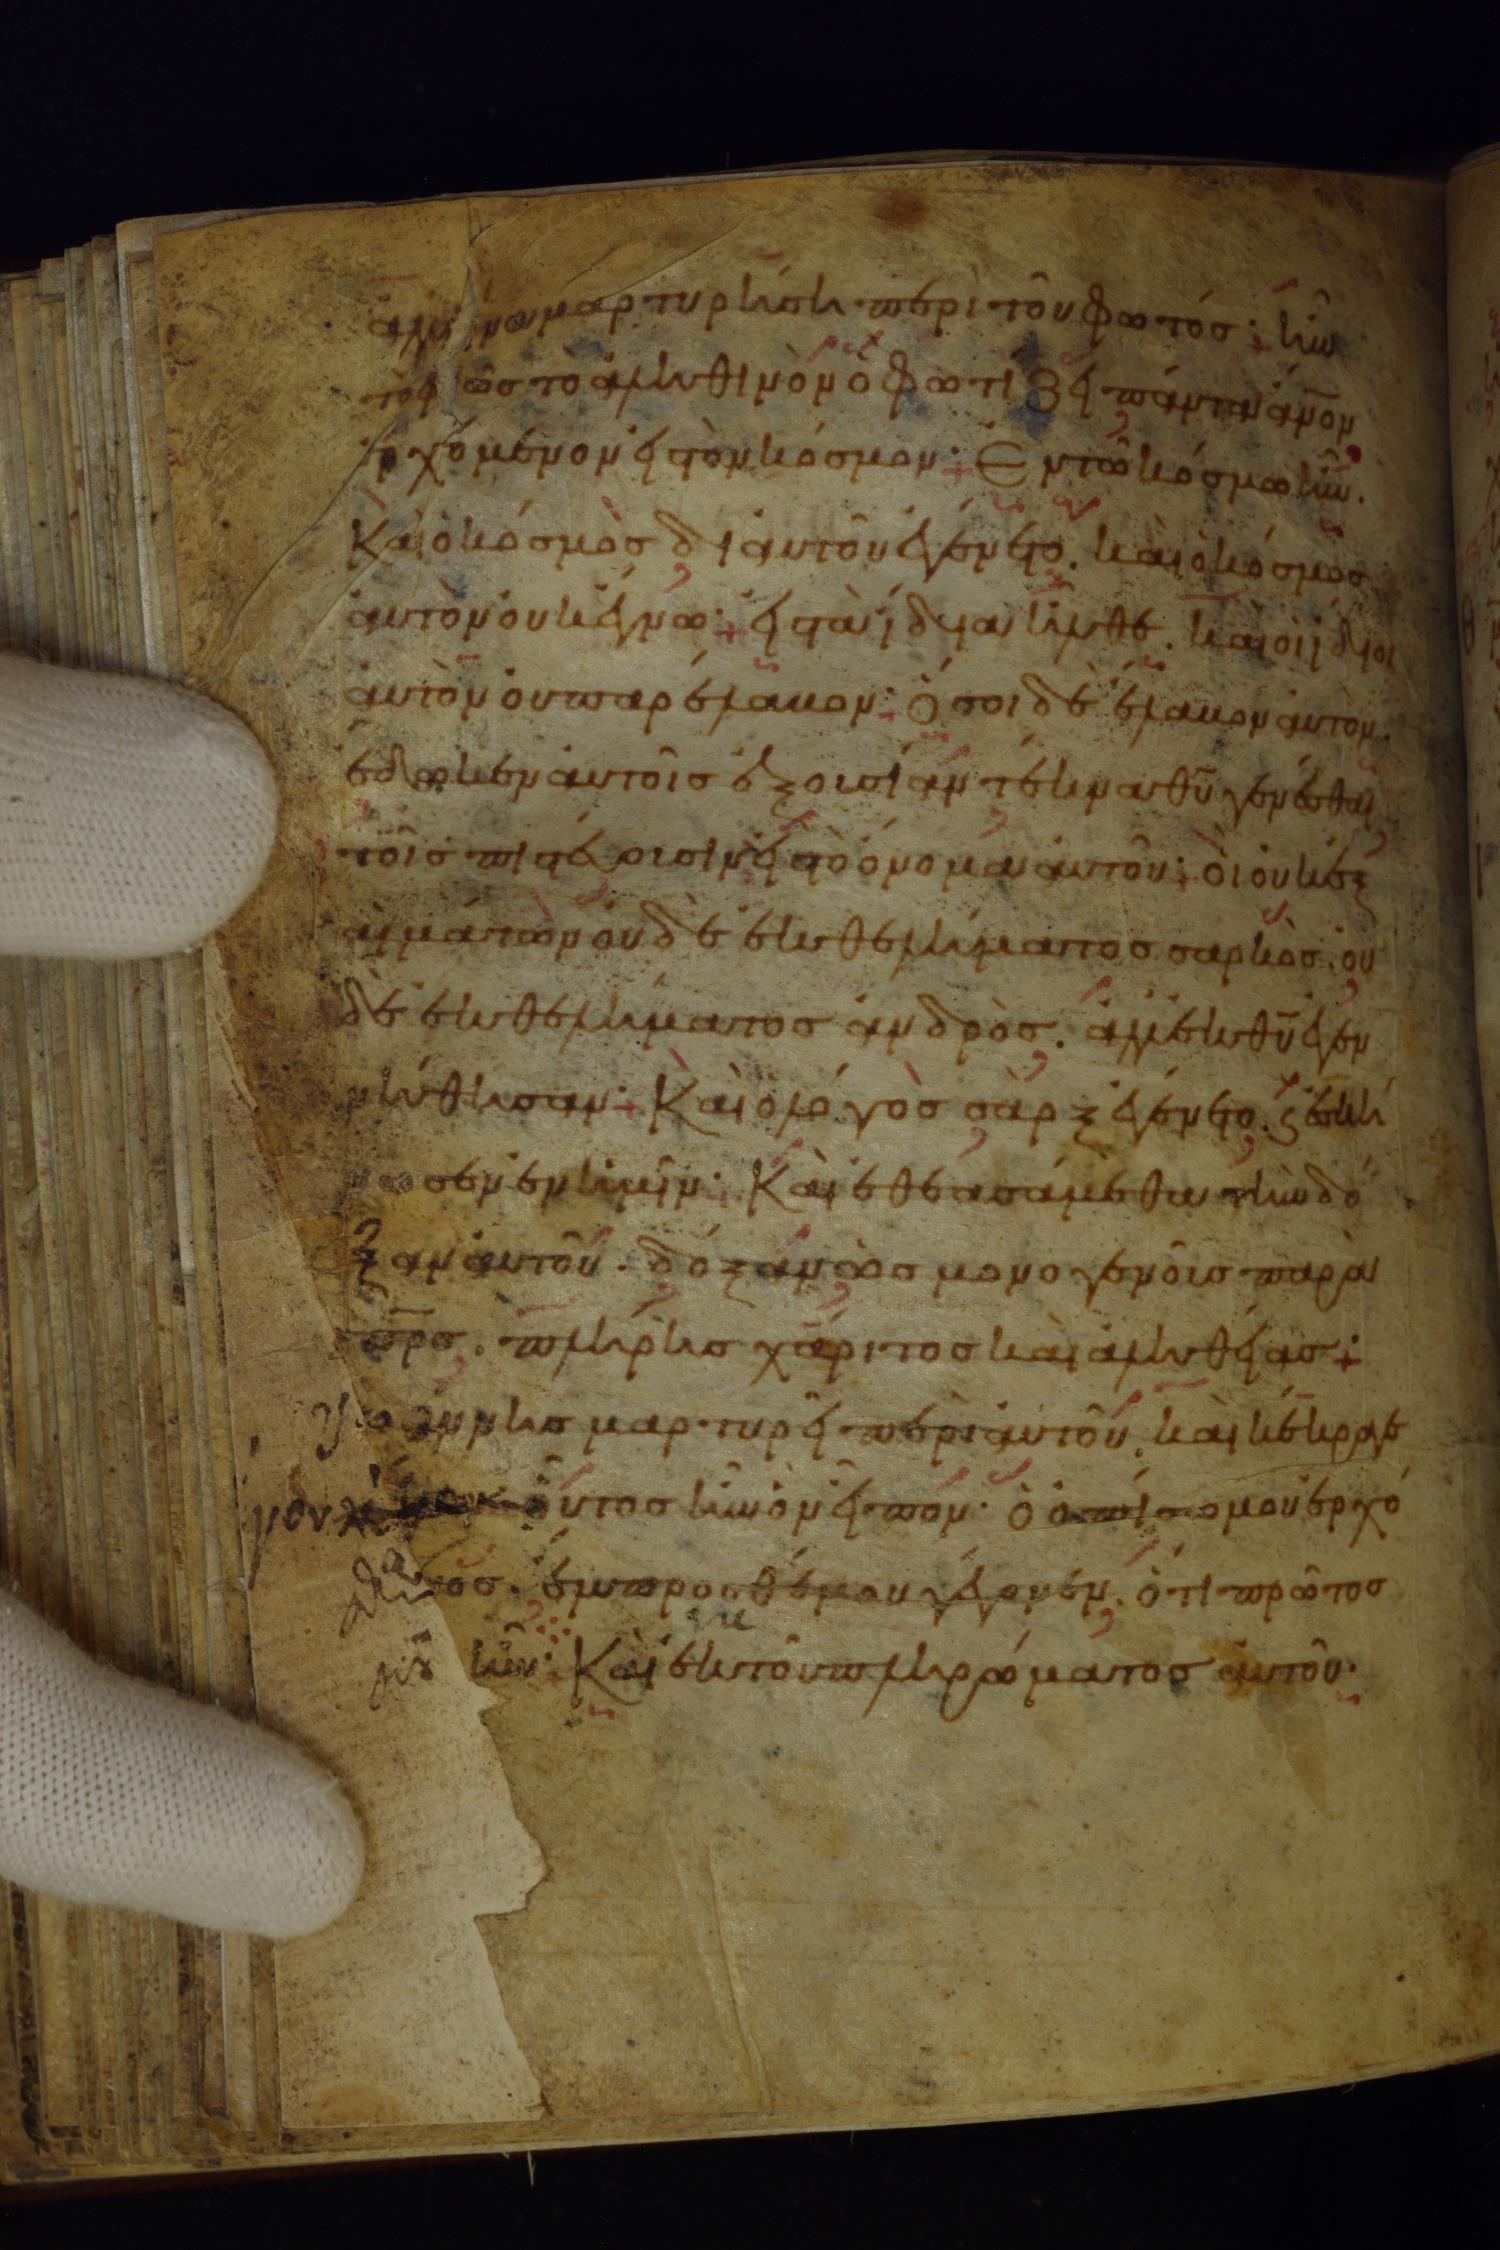 ἀλλ' ἵνα μαρτυρήση περὶ τοῦ φωτός· ἦν
τὸ φῶς τὸ ἀληθινὸν ὃ φωτίζει πάντα ἄνον
ἐρχόμενον εἰς τὸν κόσμον· Ἐν τῶ κόσμω ἦν·
Καὶ ὁ κόσμος δι αὐτοῦ ἐγένετο. καὶ ὁ κόσμος
αὐτὸν οὐκ ἔγνω· εἰς τὰ ἴδια ἦλθε. καὶ οἱ ἴδιοι
αὐτὸν οὐ παρέλαβον· Ὅσοι δὲ ἔλαβον αὐτὸν.
ἔδωκεν αὐτοῖς ἐξουσίαν τέκνα θυ γενέσθαι
τοῖς πιστεύουσιν εἰς τὸ ὄνομα αὐτοῦ· οἱ οὐκ ἐξ
αἱμάτων οὐδὲ ἐκ θελήματος σαρκὸς. οὐ
δὲ ἐκ θελήματος ἀνδρὸς. ἀλλ' ἐκ θυ ἐγεν
νήθησαν· Καὶ ὁ λόγος σὰρξ ἐγένετο. ϗ ἐσκή
νωσεν ἐν ἡμῖν· Καὶ ἐθεασάμεθα τὴν δό
ξαν αὐτοῦ. δόξαν ὡς μονογενοῦς παρὰ
πρς. πλήρης χάριτος καὶ ἀληθείας·
Ἰωάννης μαρτυρεῖ περὶ αὐτοῦ. καὶ κέκραγε
οὗτος ἦν ὃν εἶπον· ὁ ὀπίσω μου ἐρχό
μενος. ἔμπροσθέν μου γέγονεν. ὅτι πρῶτος
μου ἦν· Καὶ ἐκ τοῦ πληρώματος αὐτοῦ·